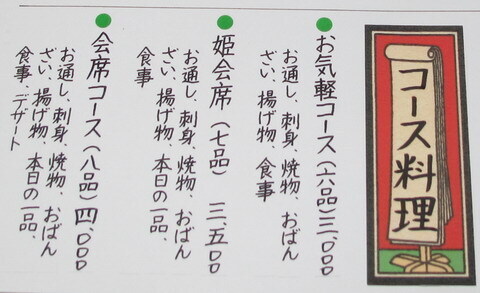 コース料理
お気軽コース(六品)三、〇〇〇
お通し、刺身、焼物、おばん
ざい、揚げ物、食事
姫会席(七品)三、五〇〇
お通し、刺身、焼物、おばん
ざい、揚げ物、本日の一品、
食事
会席コース(八品)四、〇〇〇
お通し、刺身、焼物、おばん
ざい、揚げ物、本日の一品、
食事、デザート